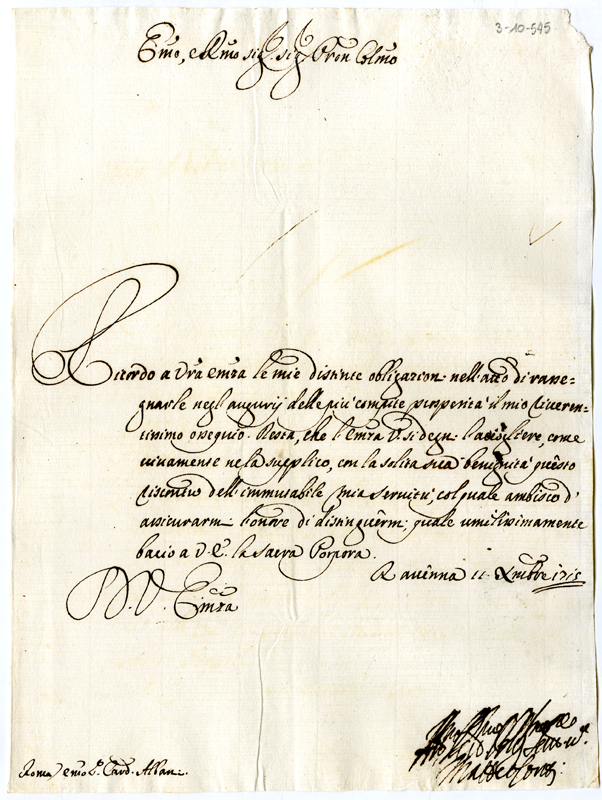 3-10-545
Emo, e Rmo sig.r sig.r Pron Colmo
Ricordo a Vra Emza le mie distinte obligazion: nell'atto di rasse=
gnarle negl'augurij delle più compite prosperità il mio riveren=
tissimo ossequio. Resta, che l'Emza V. si degn: l'accogliere, come
vivamente ne la supplico, con la solita sua benignità questo
riscontro dell'immutabile mia servitù, col quale ambisco d'
assicurarm: l'onore di distinguerm: quale umilissimamente
bacio a V. E. la Sacra Porpora.
Ravenna 11 Xmbre 1715
D. V. Emza
Matteo Conti
Roma emo S.r Card. Alban: